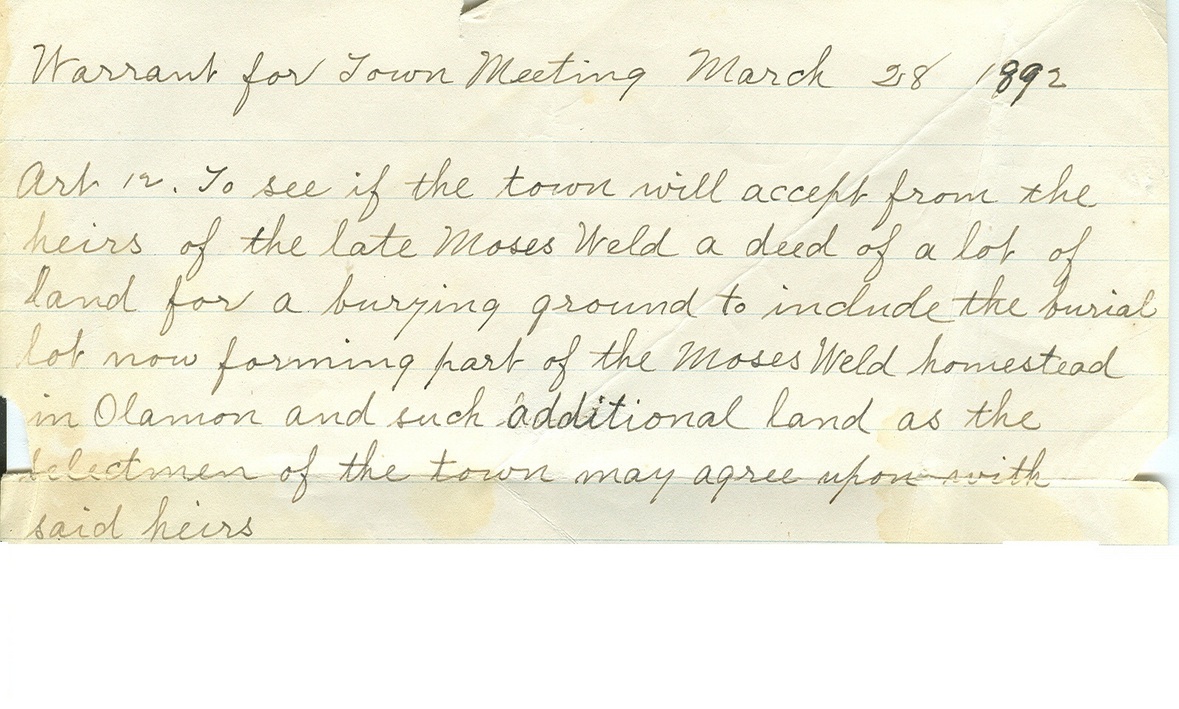 Warrant for Town Meeting March 28 1892
Art 12. To see if the town will accept from the
heirs of the late Moses Weld a deed of a lot of
land for a burying ground to include the burial
lot now forming part of the Moses Weld homestead
in Olamon and such additional land as the
selectmen of the town may agree upon with
said heirs